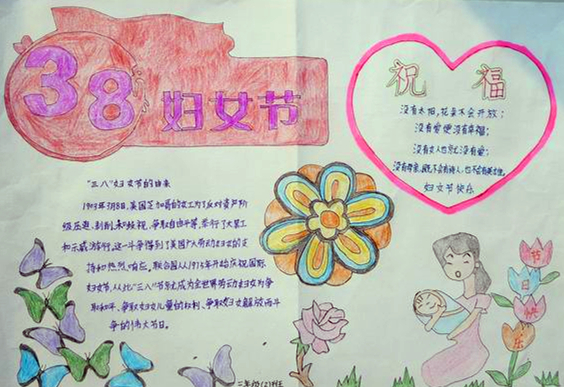 38妇女节
祝福
没有太阳,花朵不会开放;
没有爱便没有幸福;
没有女人也就没有爱;
没有母亲,既不会有诗人,也不会有英雄。
妇女节快乐
"三八"妇女节的由来
1909年3月8日,美国芝加哥的女工们为了反对资产阶
级压迫、剥削和歧视,争取自由平等,举行了大罢工
和示威游行。这一斗争得到了美国广大劳动妇女的支
持和热烈响应。联合国从1975年开始庆祝国际
妇女节,从此"三八"节就成为全世界劳动妇女为争
取和平、争取妇女儿童的权利、争取妇女解放而斗
争的伟大节日。
节日快乐
二年级(2)班